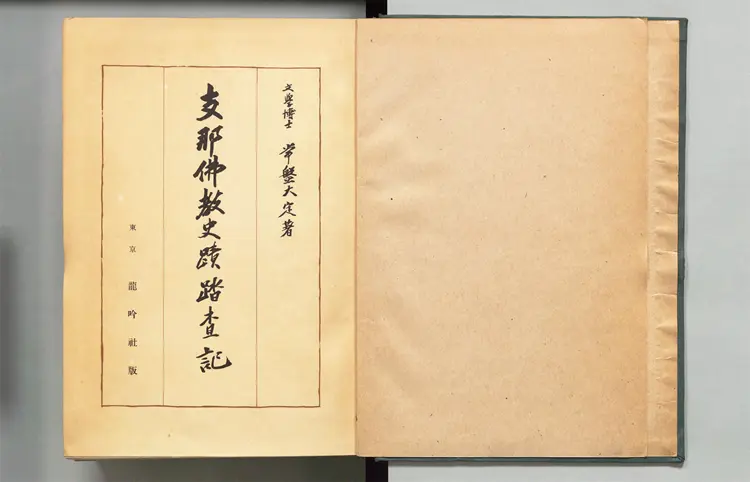 文學博士 常盤大定著
支那佛教史蹟踏查記
東京 龍吟社版